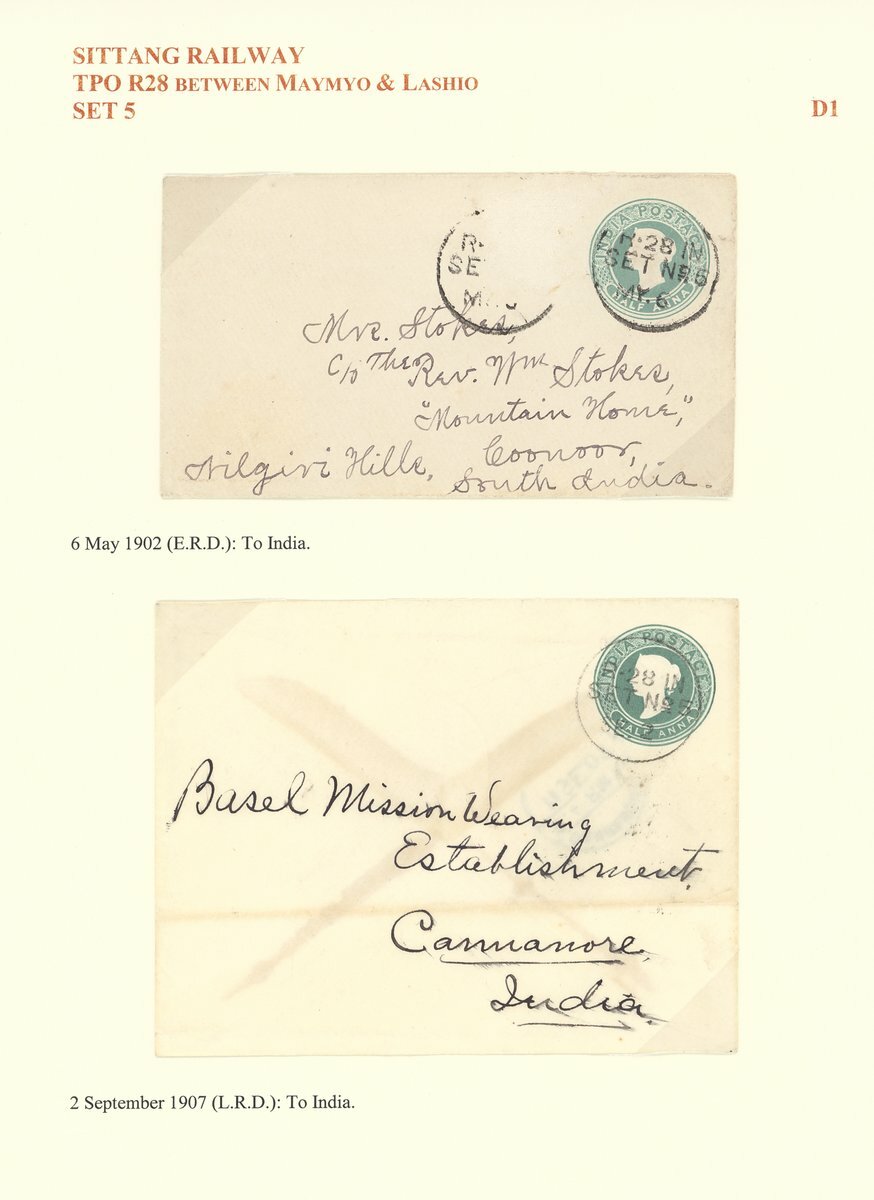 SITTANG RAILWAY
TPO R28 BETWEEN MAYMYO & LASHIO
SET 5
D1
R.
SE
INDIA POSTAGE
R-28 IN
SET No 5
MY. 6
HALF ANNA
Mrs. Stokes,
c/o The Rev. Wm Stokes,
"Mountain Home,"
Coonoor,
Nilgiri Hills,
South India.
6 May 1902 (E.R.D.): To India.
INDIA POSTAGE
28 IN
T No 5
SE 2
HALF ANNA
Basel Mission Weaving
Establishment.
Cannanore,
India.
2 September 1907 (L.R.D.): To India.